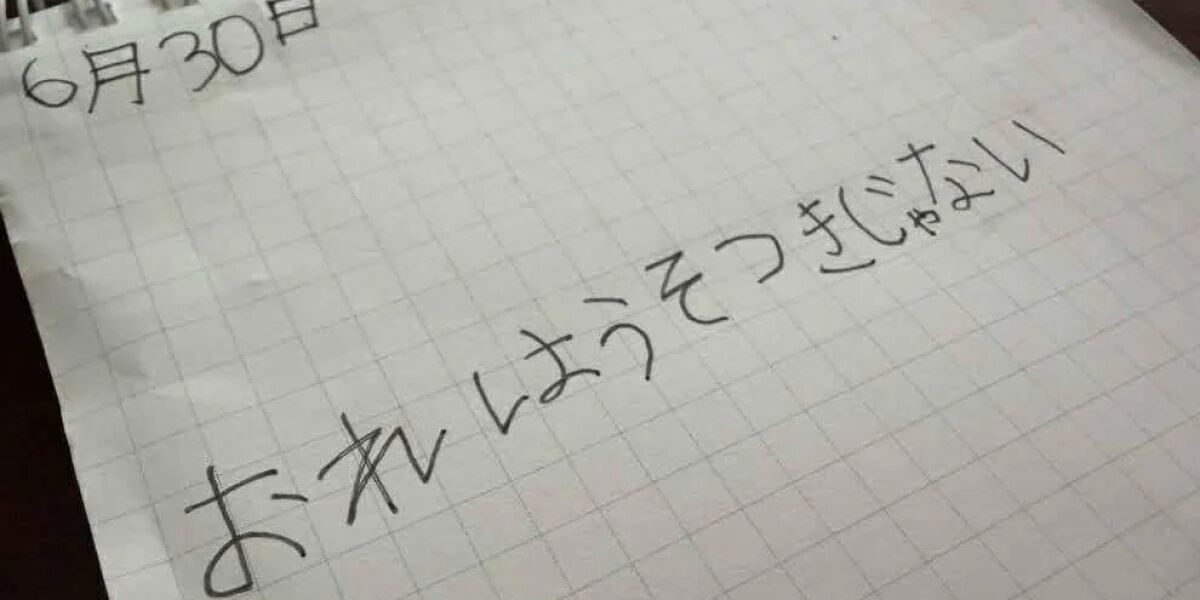 6月30日
おれはうそつきじゃない